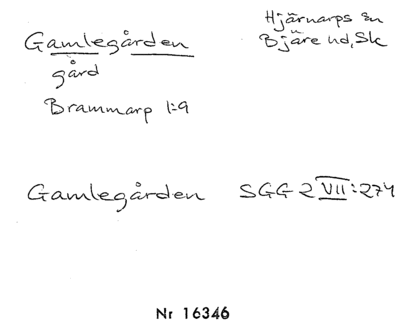 Gamlegården
Hjärnarps sn
Bjäre hd, Sk
gård
Brammarp 1:9
Gamlegården SGG 2 VII:274
Nr 16346